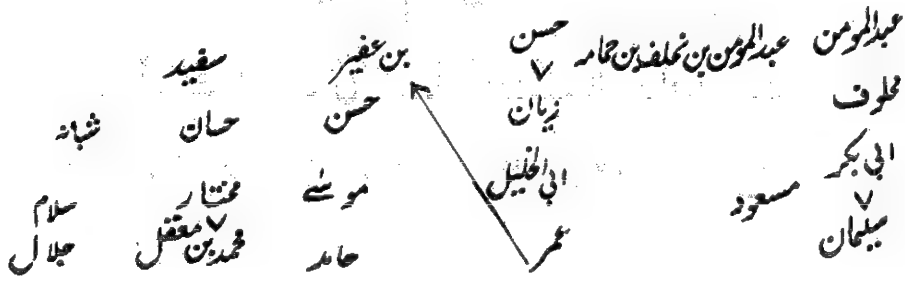 عبدالمومن عبدالمومن بن نملف بن حمامه حسن بن عفیر سفید
مخلوف زیان حسن حسان شبانہ
ابی بکر مسعود ابی الخلیل موسے مختار سلام
سلیمان عمر حامد محمد بن معقل جلال